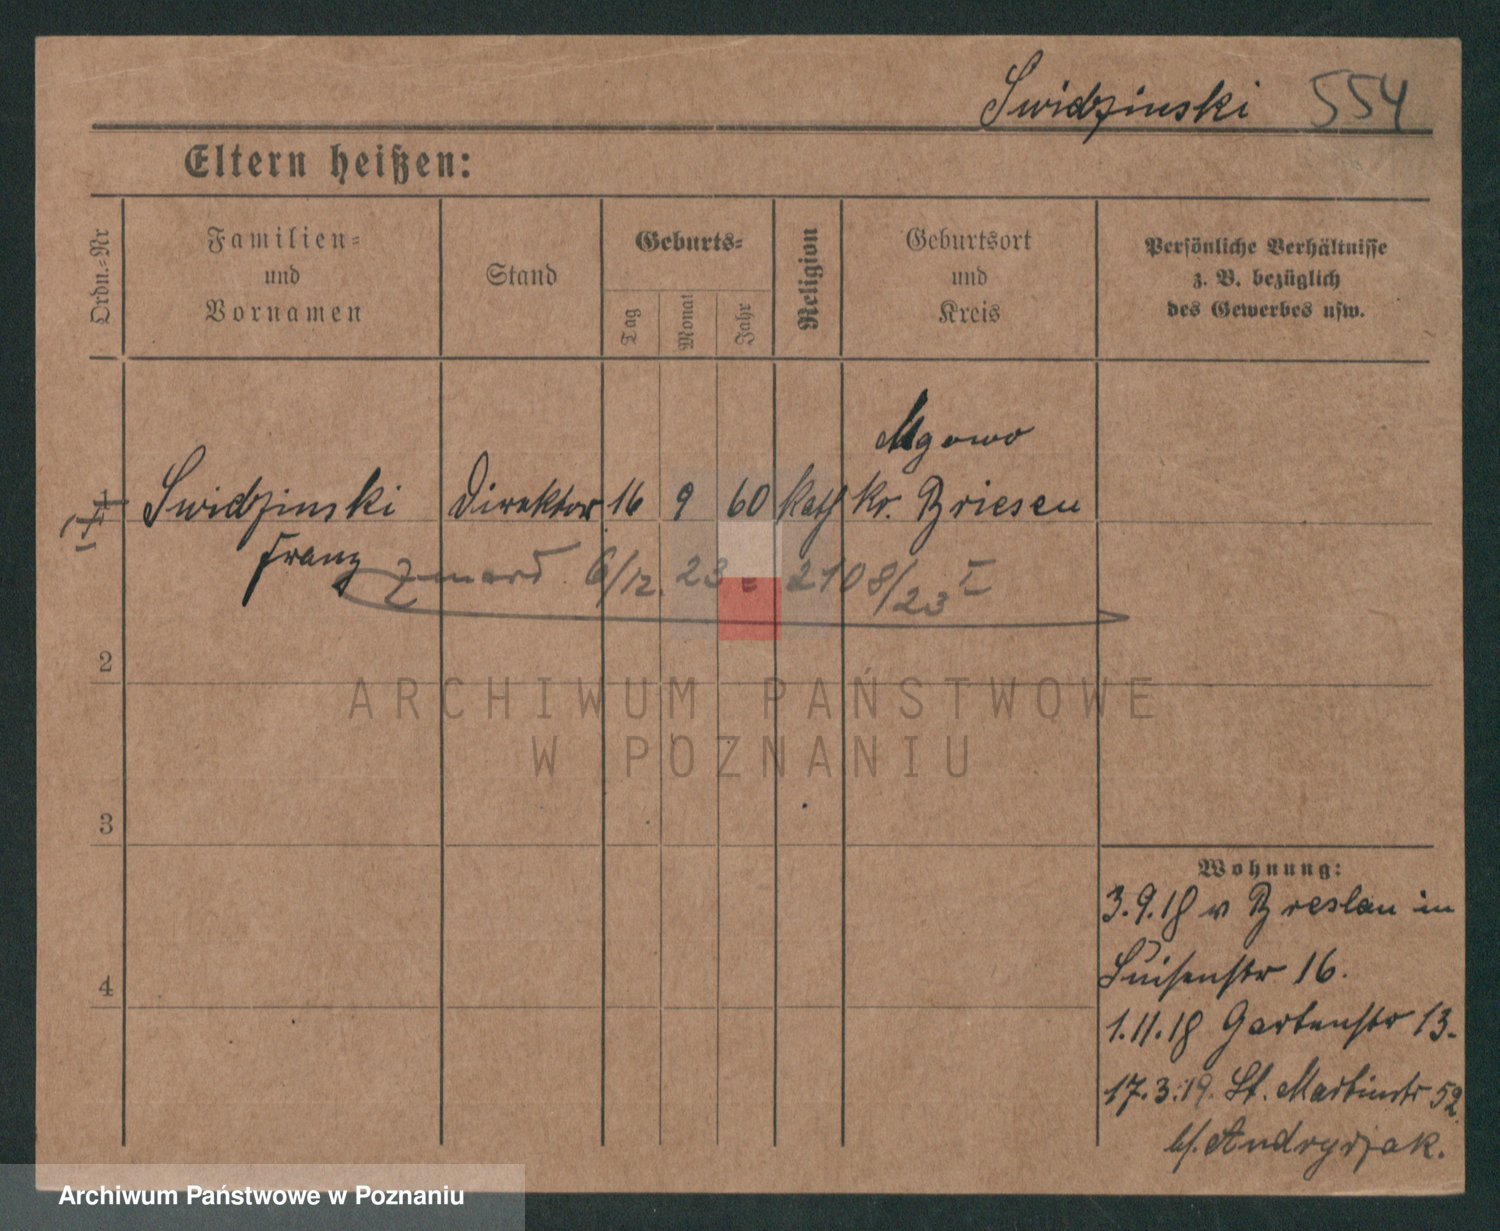 Swidzinski 554
Eltern heißen:
Ordn.-Nr
Familien-
und
Vornamen
Stand
Geburts-
Tag
Monat
Jahr
Religion
Geburtsort
und
Kreis
Persönliche Verhältnisse
z. B. bezüglich
des Gewerbes usw.
Mgowo
1 Swidzinski Direktor 16 9 60 kath Kr. Briesen
Franz
zmarł 6/12. 23 2108/23 I
2
ARCHIWUM PAŃSTWOWE
W POZNANIU
3
4
Wohnung:
3.9.18 v Breslau in
Luisenstr 16.
1.11.18 Gartenstr 13.
17.3.19. St. Martinstr 52
b/. Andrzejak.
Archiwum Państwowe w Poznaniu